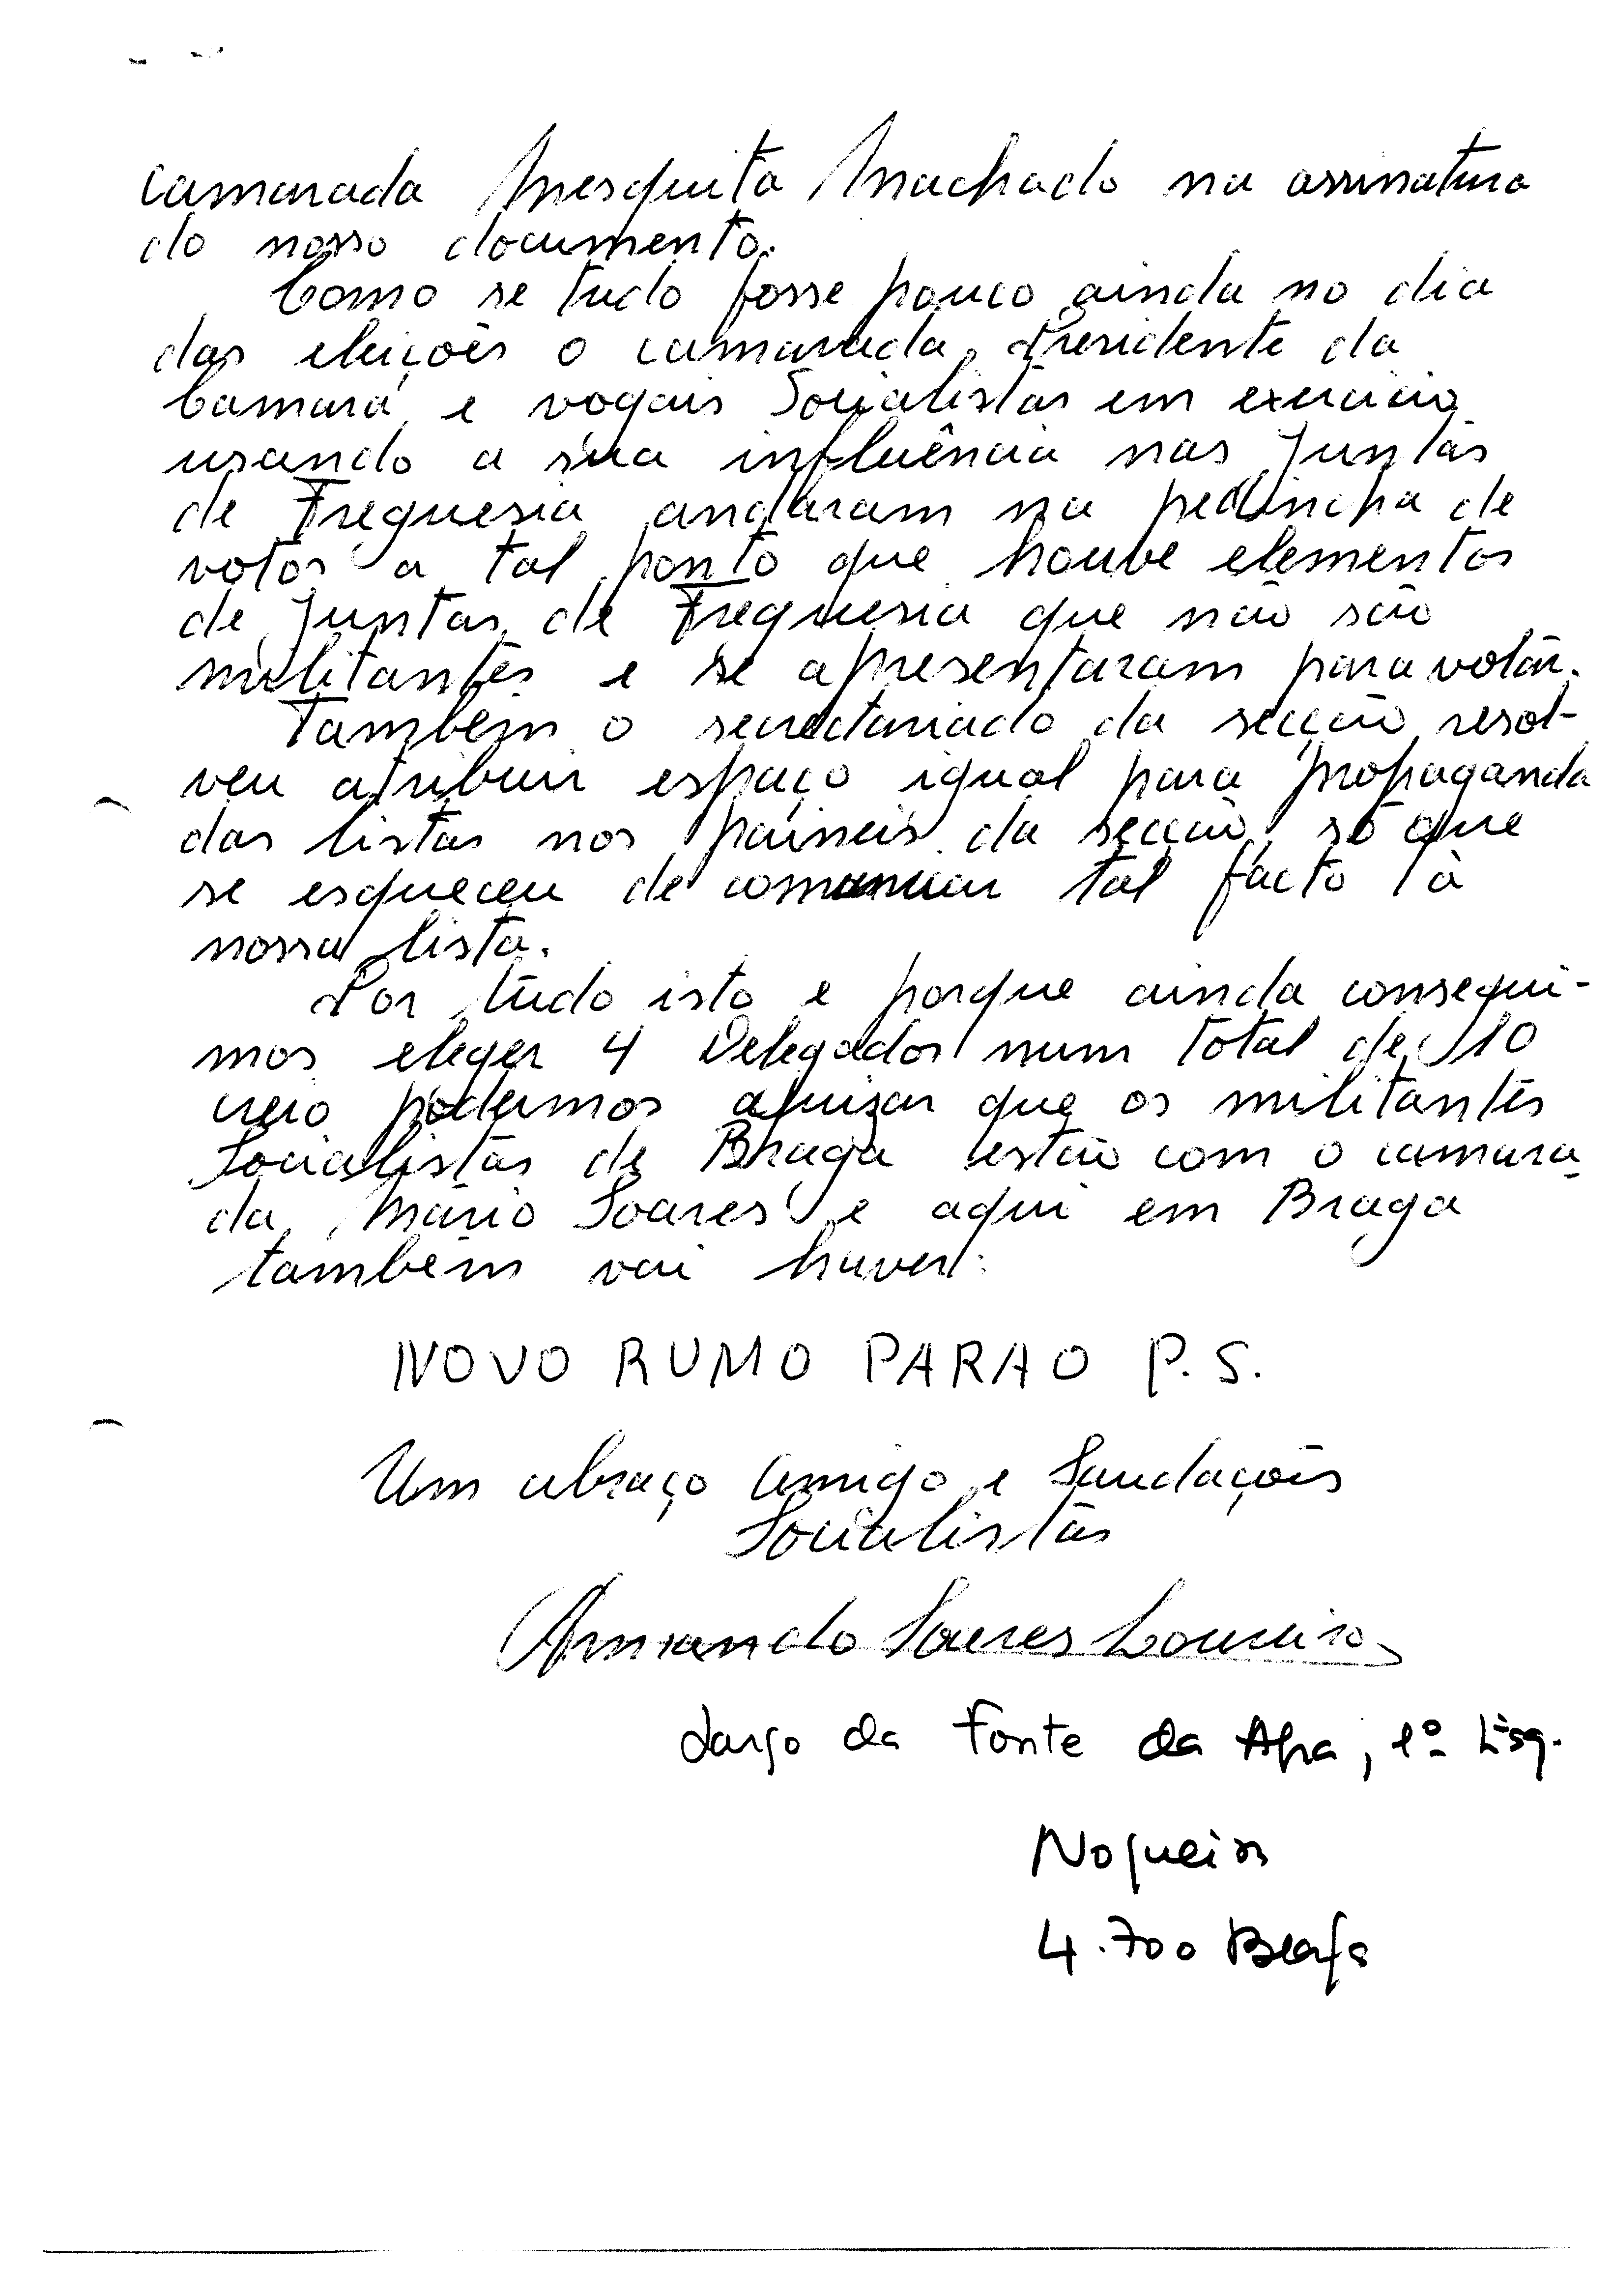 camarada Mesquita Machado na assinatura
do nosso documento.
Como se tudo fosse pouco ainda no dia
das eleições o camarada Presidente da
Camara e vogais Socialistas em exercicio
usando a sua influência nas Juntas
de Freguesia andaram na pedincha de
votos a tal ponto que houve elementos
de Juntas de Freguesia que não são
militantes e se apresentaram para votar.
Também o secretariado da secção resol-
veu atribuir espaço igual para propaganda
das listas nos paineis da secção, só que
se esqueceu de comunicar tal facto à
nossa lista.
Por tudo isto e porque ainda consegui-
mos eleger 4 Delegados num total de 10
creio podermos ajuizar que os militantes
Socialistas de Braga estão com o camara-
da Mário Soares e aqui em Braga
também vai haver:
NOVO RUMO PARA O P.S.
Um abraço Amigo e Saudações
Socialistas
Armando Soares Loureiro
Largo da Fonte da , 1º Esq.
Nogueira
4.700 Braga